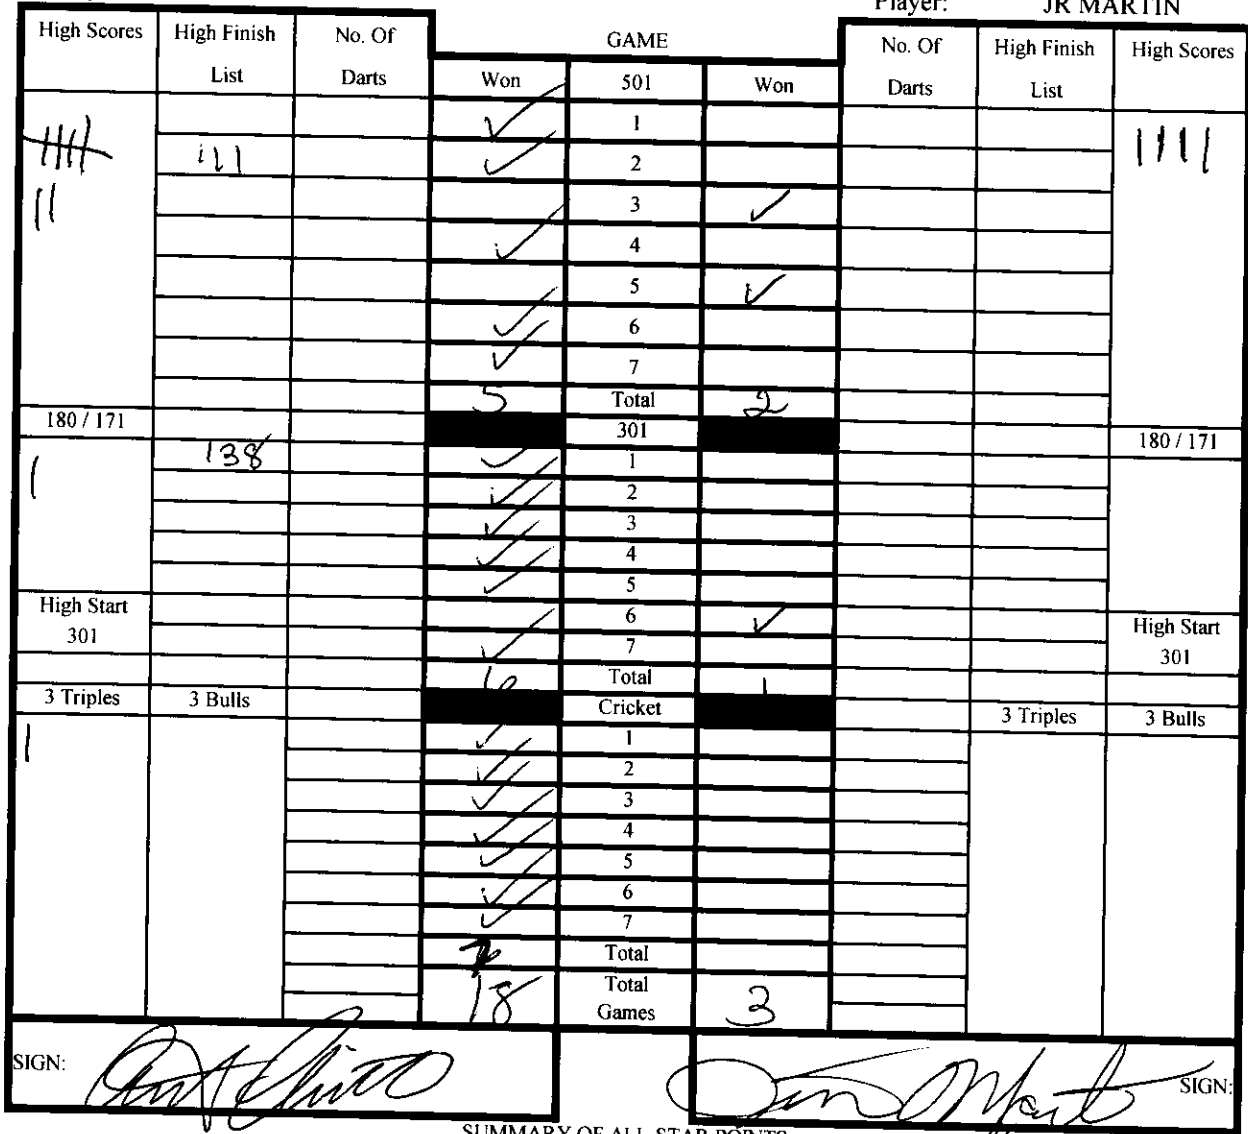 Player: JR MARTIN
High Scores High Finish List No. Of Darts GAME No. Of Darts High Finish List High Scores
Won 501 Won
✓ 1
𝍸 111 ✓ 2 ||||
|| 3 ✓
✓ 4
5 ✓
✓ 6
✓ 7
5 Total 2
180 / 171 301 180 / 171
| 138 ✓ 1
✓ 2
✓ 3
✓ 4
✓ 5
High Start 301 6 ✓ High Start 301
✓ 7
6 Total 1
3 Triples 3 Bulls Cricket 3 Triples 3 Bulls
| ✓ 1
✓ 2
✓ 3
✓ 4
✓ 5
✓ 6
✓ 7
7 Total
18 Total Games 3
SIGN: SIGN:
SUMMARY OF ALL STAR POINTS